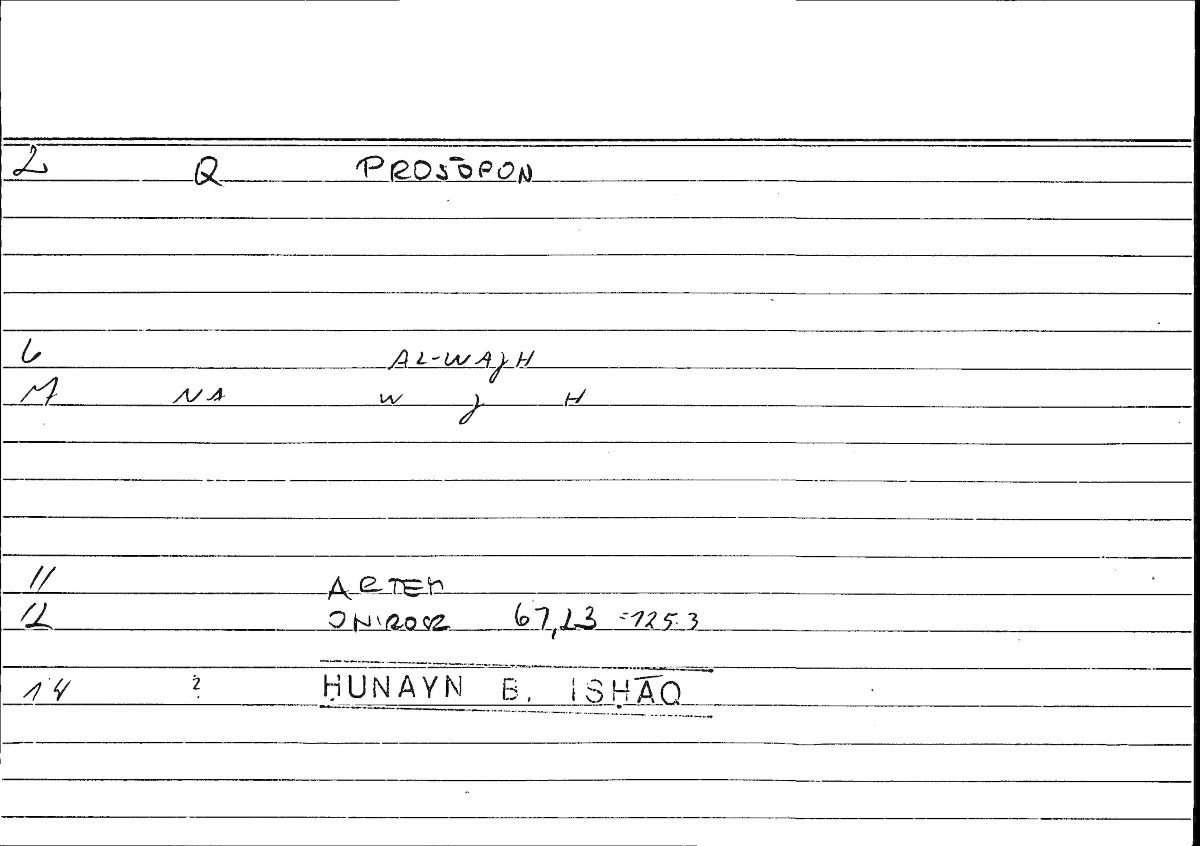 2 Q PROSŌPON
6 AL-WAJH
7 NA W J H
11 ARTEM
12 ONIROCR 67,23 =125.3
14 ? ḤUNAYN B. ISḤĀQ